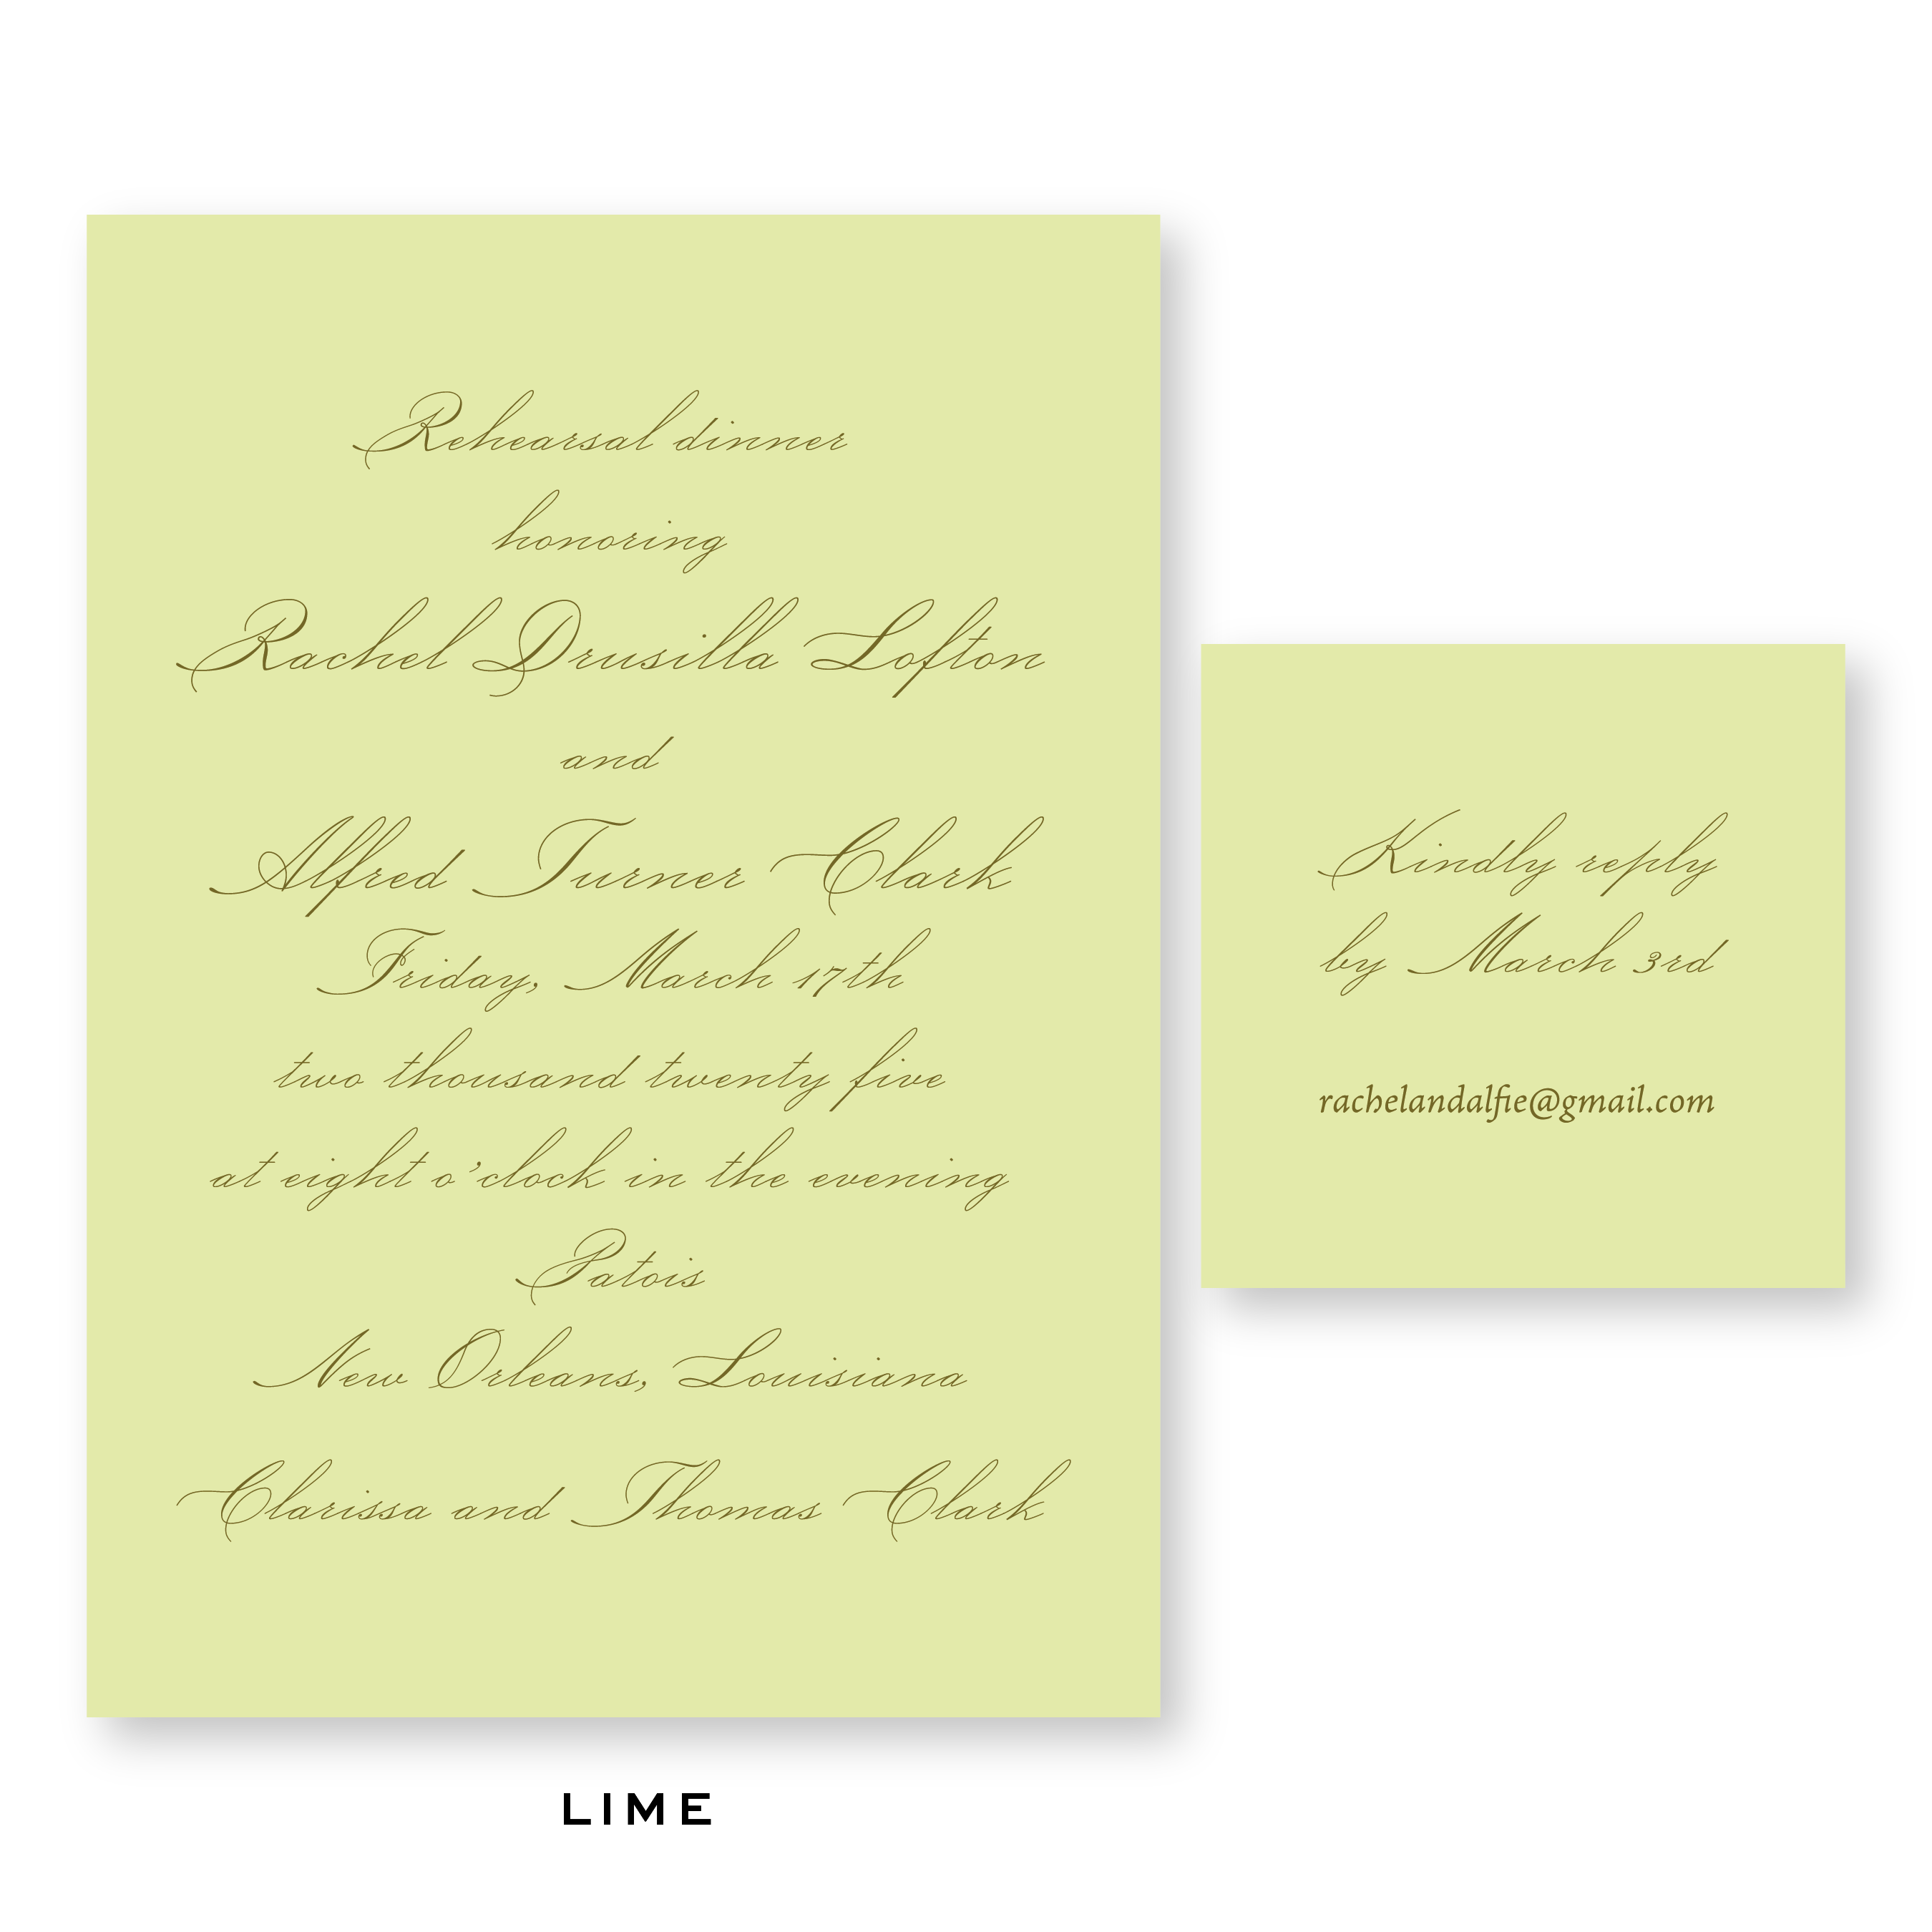 Rehearsal dinner
honoring
Rachel Drusilla Lofton
and
Alfred Turner Clark
Friday, March 17th
two thousand twenty five
at eight o'clock in the evening
Patois
New Orleans, Louisiana
Clarissa and Thomas Clark
Kindly reply
by March 3rd
rachelandalfie@gmail.com
LIME